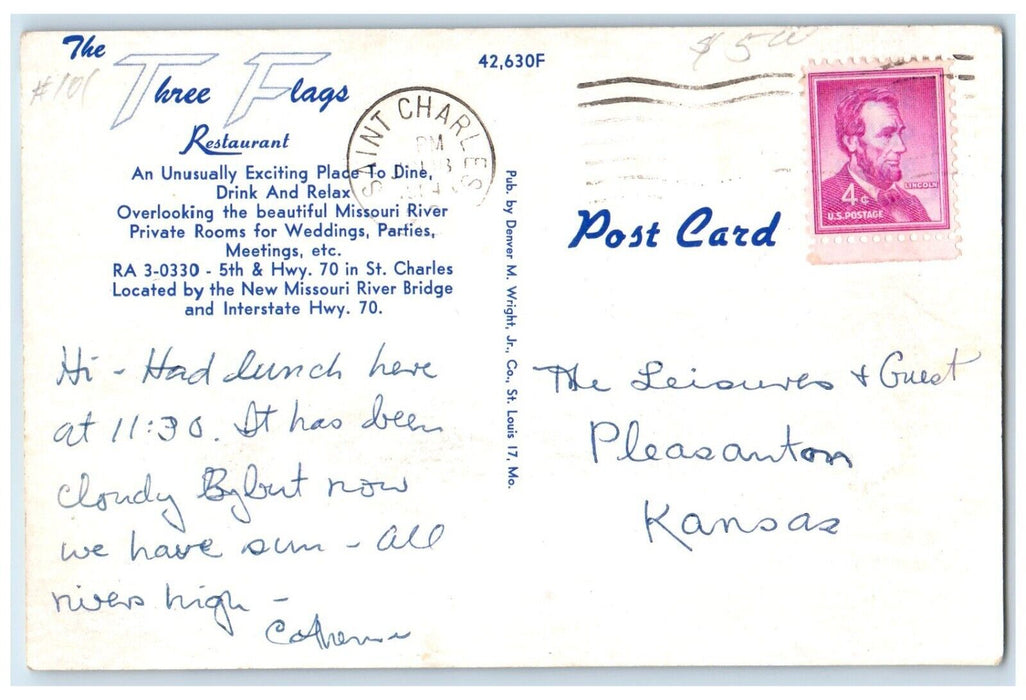 The
Three Flags
Restaurant
An Unusually Exciting Place To Dine,
Drink And Relax
Overlooking the beautiful Missouri River
Private Rooms for Weddings, Parties,
Meetings, etc.
RA 3-0330 - 5th & Hwy. 70 in St. Charles
Located by the New Missouri River Bridge
and Interstate Hwy. 70.
#101
42,630F
SAINT CHARLES
PM
Pub. by Denver M. Wright, Jr., Co., St. Louis 17, Mo.
Post Card
4¢
LINCOLN
U.S. POSTAGE
Hi - Had lunch here
at 11:30. It has been
cloudy but now
we have sun - All
rivers high -
The Leisures + Guest
Pleasanton
Kansas